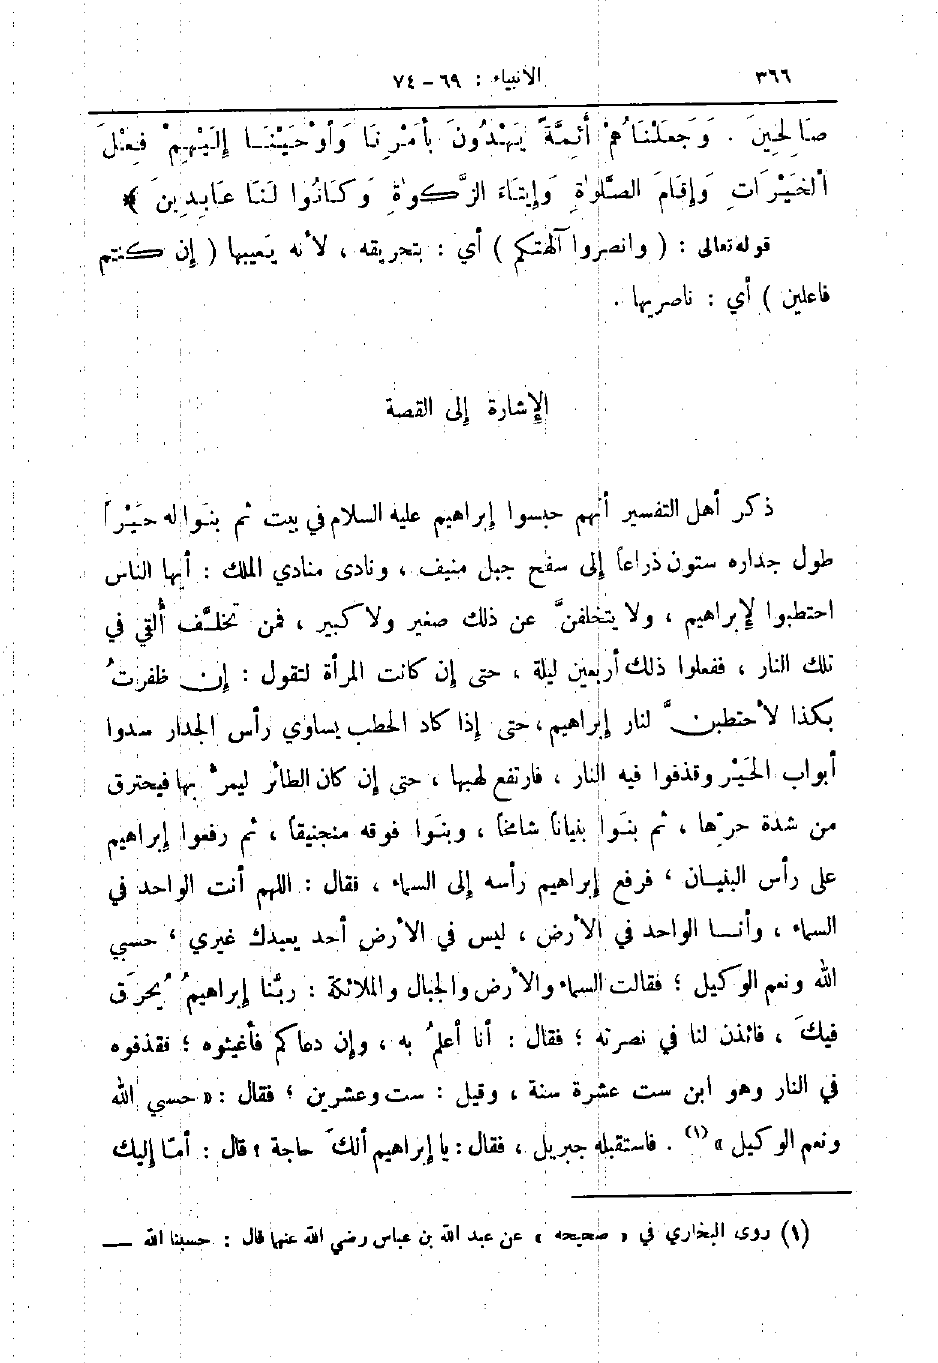 ٣٦٦
الأنبياء : ٦٩ - ٧٤
صَالِحِينَ . وَجَعَلْنَاهُمْ أَئِمَّةً يَهْدُونَ بِأَمْرِنَا وَأَوْحَيْنَا إِلَيْهِمْ فِعْلَ
الْخَيْرَاتِ وَإِقَامَ الصَّلٰوةِ وَإِيتَاءَ الزَّكٰوةِ وَكَانُوا لَنَا عَابِدِينَ ﴾
قوله تعالى : ( وانصروا آلهتكم ) أي : بتحريقه ، لأنه يَعيبها ( إن كنتم
فاعلين ) أي : ناصريها .
الإشارة إلى القصة
ذكر أهل التفسير أنهم حبسوا إبراهيم عليه السلام في بيت ثم بنَوا له حَيْراً
طول جداره ستون ذراعاً إلى سفح جبل منيف ، ونادى منادي الملك : أيها الناس
احتطبوا لإبراهيم ، ولا يتخلفنَّ عن ذلك صغير ولا كبير ، فمن تخلَّف أُلقي في
تلك النار ، ففعلوا ذلك أربعين ليلة ، حتى إن كانت المرأة لتقول : إن ظفرتُ
بكذا لأحتطبنَّ لنار إبراهيم ، حتى إذا كاد الحطب يساوي رأس الجدار سدوا
أبواب الحَيْر وقذفوا فيه النار ، فارتفع لهبها ، حتى إن كان الطائر ليمرُّ بها فيحترق
من شدة حرّها ، ثم بنَوا بنياناً شامخاً ، وبنَوا فوقه منجنيقاً ، ثم رفعوا إبراهيم
على رأس البنيان ، فرفع إبراهيم رأسه إلى السماء ، فقال : اللهم أنت الواحد في
السماء ، وأنا الواحد في الأرض ، ليس في الأرض أحد يعبدك غيري ، حسبي
الله ونعم الوكيل ؛ فقالت السماء والأرض والجبال والملائكة : ربَّنا إبراهيمُ يُحرَق
فيكَ ، فائذن لنا في نصرته ؛ فقال : أنا أعلمُ به ، وإن دعاكم فأغيثوه ؛ فقذفوه
في النار وهو ابن ست عشرة سنة ، وقيل : ست وعشرين ؛ فقال : « حسبي الله
ونعم الوكيل » (١) . فاستقبله جبريل ، فقال : يا إبراهيم ألكَ حاجة ؟ قال : أمّا إليك
(١) روى البخاري في « صحيحه » عن عبد الله بن عباس رضي الله عنهما قال : حسبنا الله —